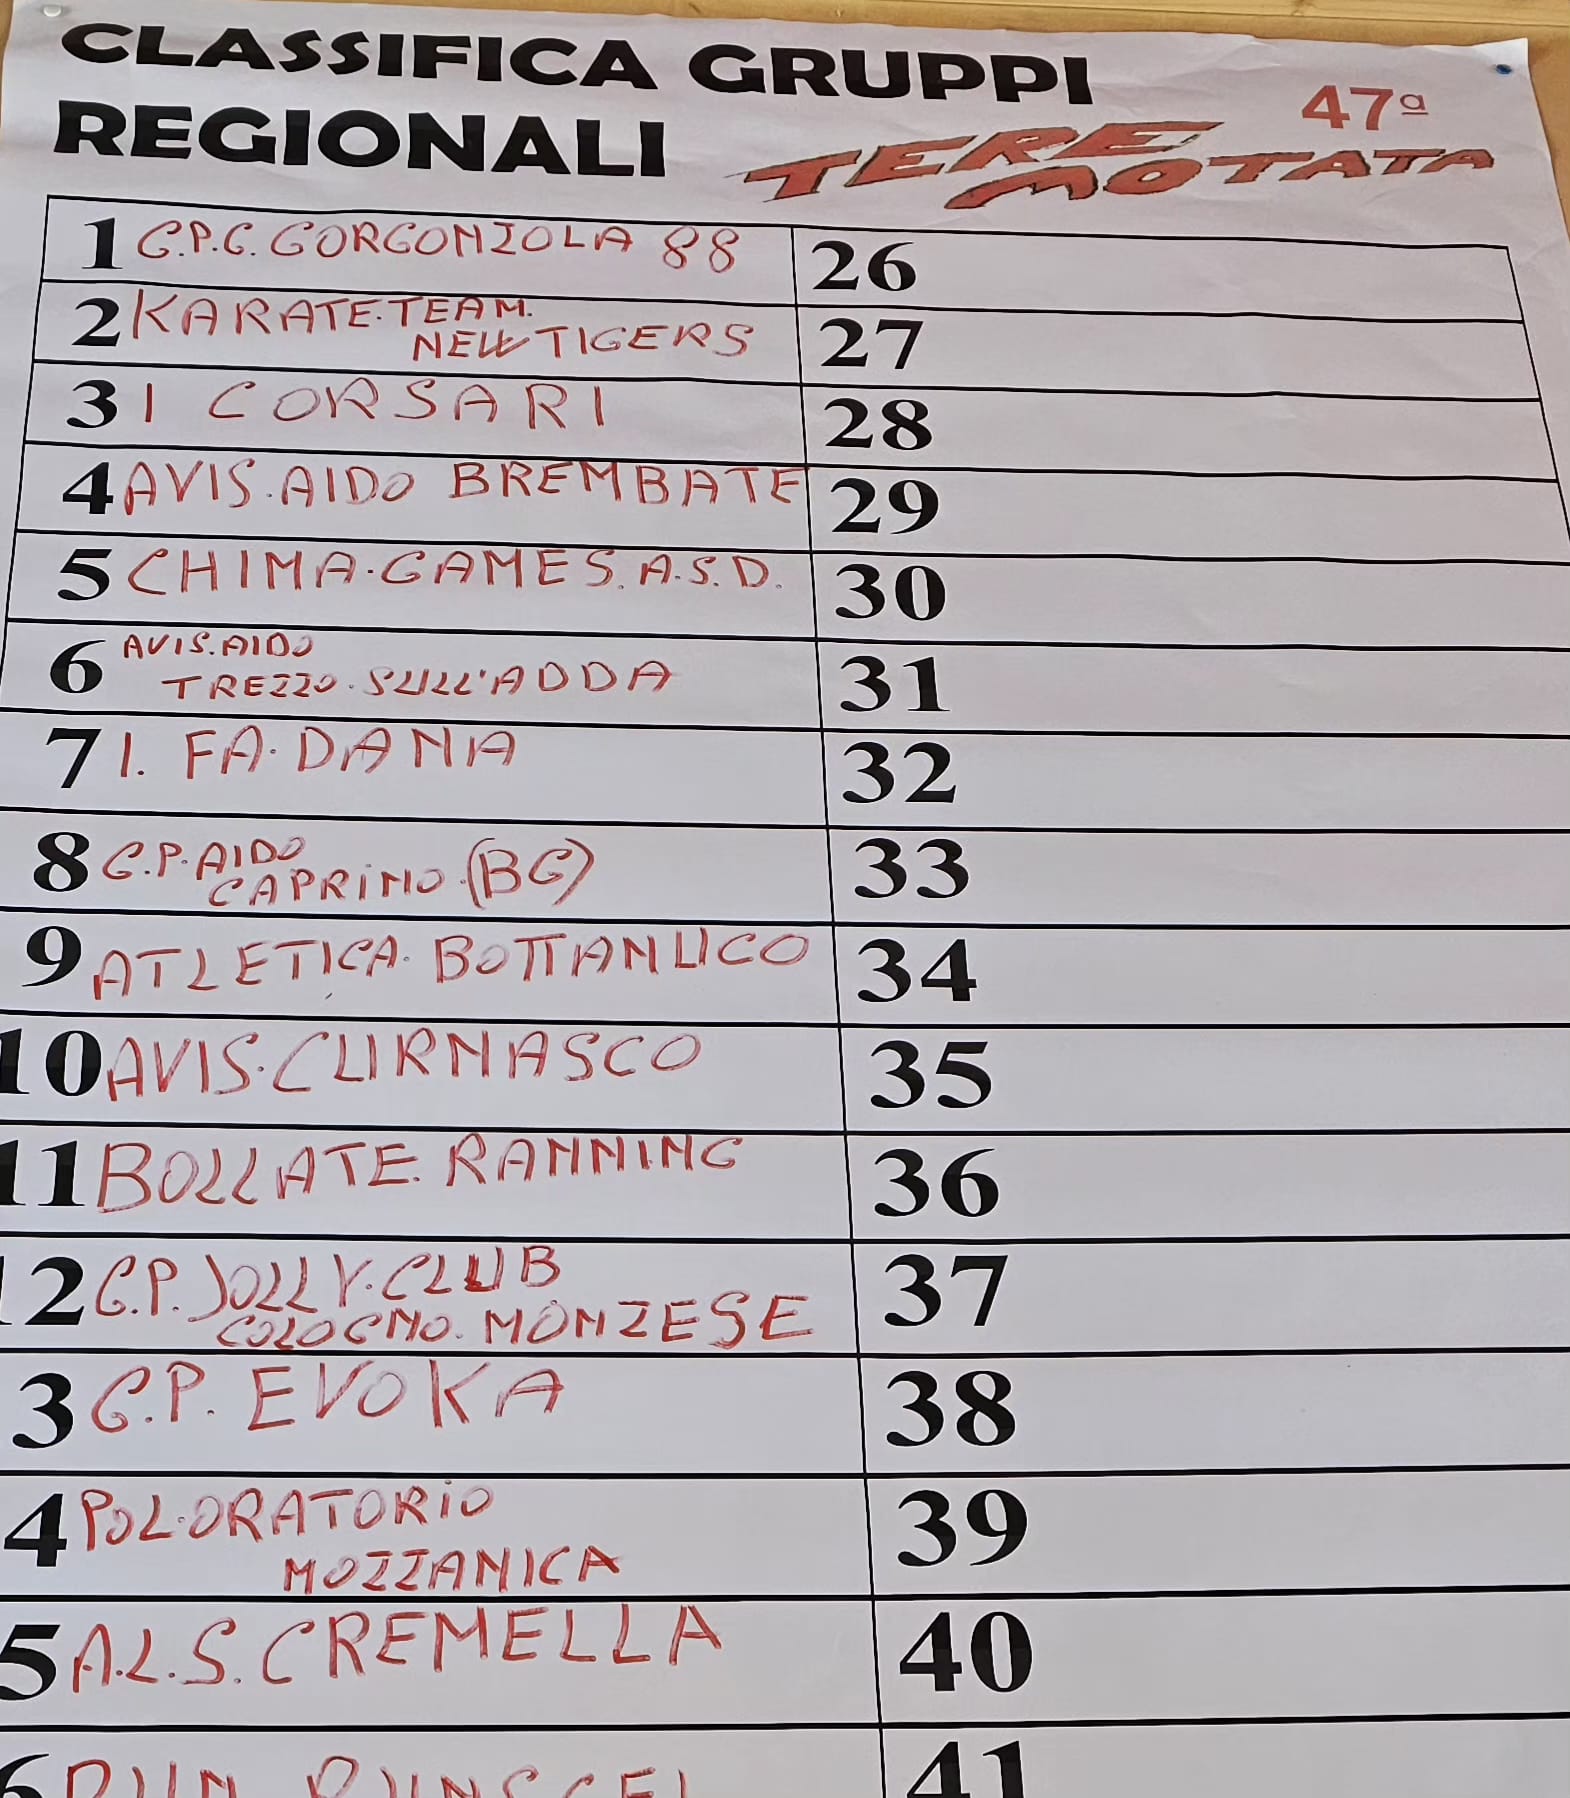 CLASSIFICA GRUPPI
REGIONALI
47ª
TEREMOTATA
1 G.P.G. GORGONZOLA 88
2 KARATE.TEAM.
NEW TIGERS
3 I CORSARI
4 AVIS.AIDO BREMBATE
5 CHIMA.GAMES.A.S.D.
6 AVIS.AIDO
TREZZO.SULL'ADDA
7 I. FA.DANA
8 G.P.AIDO
CAPRINO.(BG)
9 ATLETICA.BOTTANUCO
10 AVIS.CURNASCO
11 BOLLATE.RANNING
12 G.P.JOLLY.CLUB
COLOGNO.MONZESE
3 G.P. EVOKA
4 POL.ORATORIO
MOZZANICA
5 A.L.S.CREMELLA
6 RUN
26
27
28
29
30
31
32
33
34
35
36
37
38
39
40
41